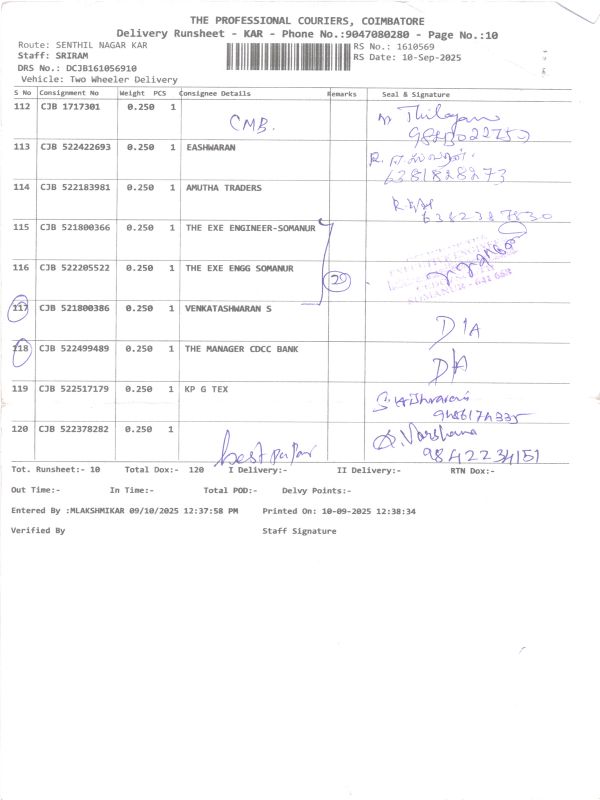 THE PROFESSIONAL COURIERS, COIMBATORE
Delivery Runsheet - KAR - Phone No.:9047080280 - Page No.:10
Route: SENTHIL NAGAR KAR
RS No.: 1610569
Staff: SRIRAM
RS Date: 10-Sep-2025
DRS No.: DCJB161056910
Vehicle: Two Wheeler Delivery
S No Consignment No Weight PCS Consignee Details Remarks Seal & Signature
112 CJB 1717301 0.250 1 CMB. Thilagam
113 CJB 522422693 0.250 1 EASHWARAN R.
6381828273
114 CJB 522183981 0.250 1 AMUTHA TRADERS
6382387830
115 CJB 521800366 0.250 1 THE EXE ENGINEER-SOMANUR
116 CJB 522205522 0.250 1 THE EXE ENGG SOMANUR
117 CJB 521800386 0.250 1 VENKATASHWARAN S D/A
118 CJB 522499489 0.250 1 THE MANAGER CDCC BANK D/A
119 CJB 522517179 0.250 1 KP G TEX
120 CJB 522378282 0.250 1 best paper S. Varshana
9842234151
Tot. Runsheet:- 10 Total Dox:- 120 I Delivery:- II Delivery:- RTN Dox:-
Out Time:- In Time:- Total POD:- Delvy Points:-
Entered By :MLAKSHMIKAR 09/10/2025 12:37:58 PM Printed On: 10-09-2025 12:38:34
Verified By Staff Signature